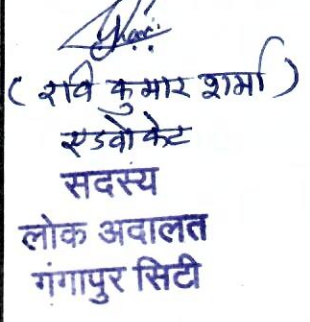 ( रवि कुमार शर्मा )
एडवोकेट
सदस्य
लोक अदालत
गंगापुर सिटी